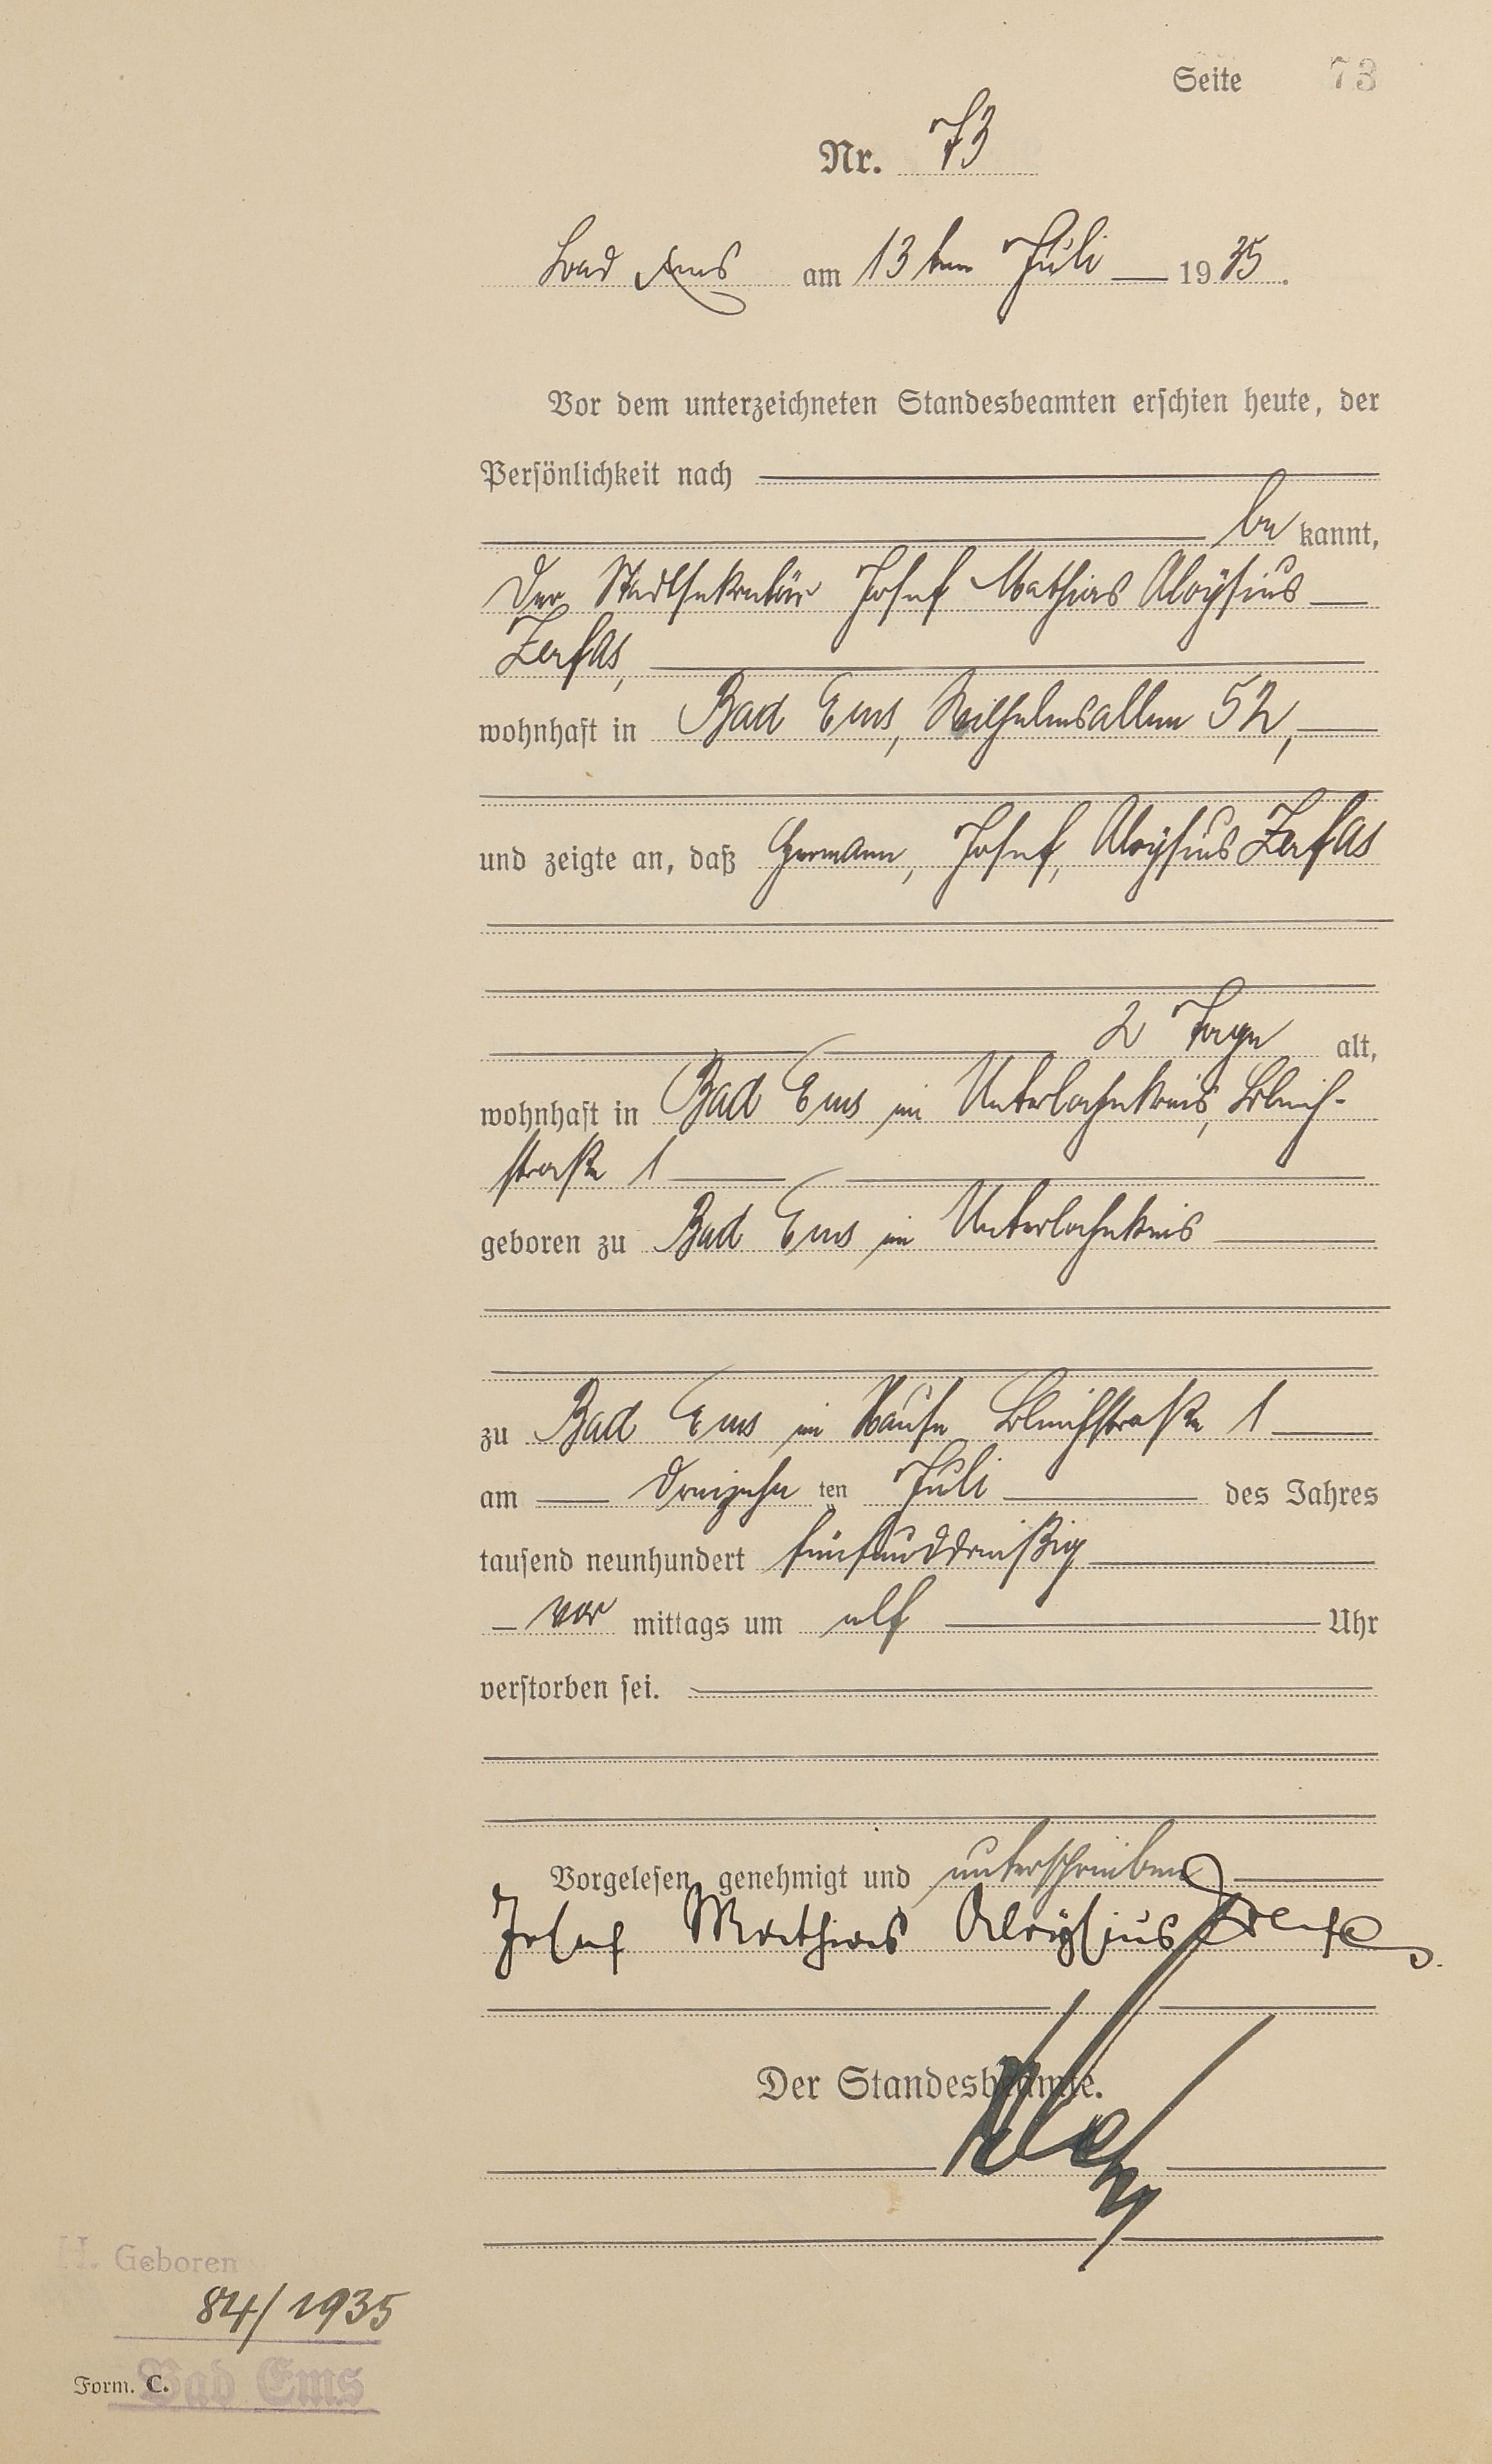 Seite 73
Nr. 73
Bad Ems am 13ten Juli 1935.
Vor dem unterzeichneten Standesbeamten erschien heute, der
Persönlichkeit nach
be kannt,
der Stadtsekretär Josef Mathias Aloysius
Zerfas,
wohnhaft in Bad Ems, Wilhelmsallee 52,
und zeigte an, daß Hermann, Josef, Aloysius Zerfas
2 Tage alt,
wohnhaft in Bad Ems im Unterlahnkreis, Bleich-
straße 1
geboren zu Bad Ems im Unterlahnkreis
zu Bad Ems im Hause Bleichstraße 1
am dreizehn ten Juli des Jahres
tausend neunhundert fünfunddreißig
vor mittags um elf Uhr
verstorben sei.
Vorgelesen, genehmigt und unterschrieben
Josef Mathias Aloysius Zerfas.
Der Standesbeamte.
H. Geboren
84/1935
Form. C. Bad Ems